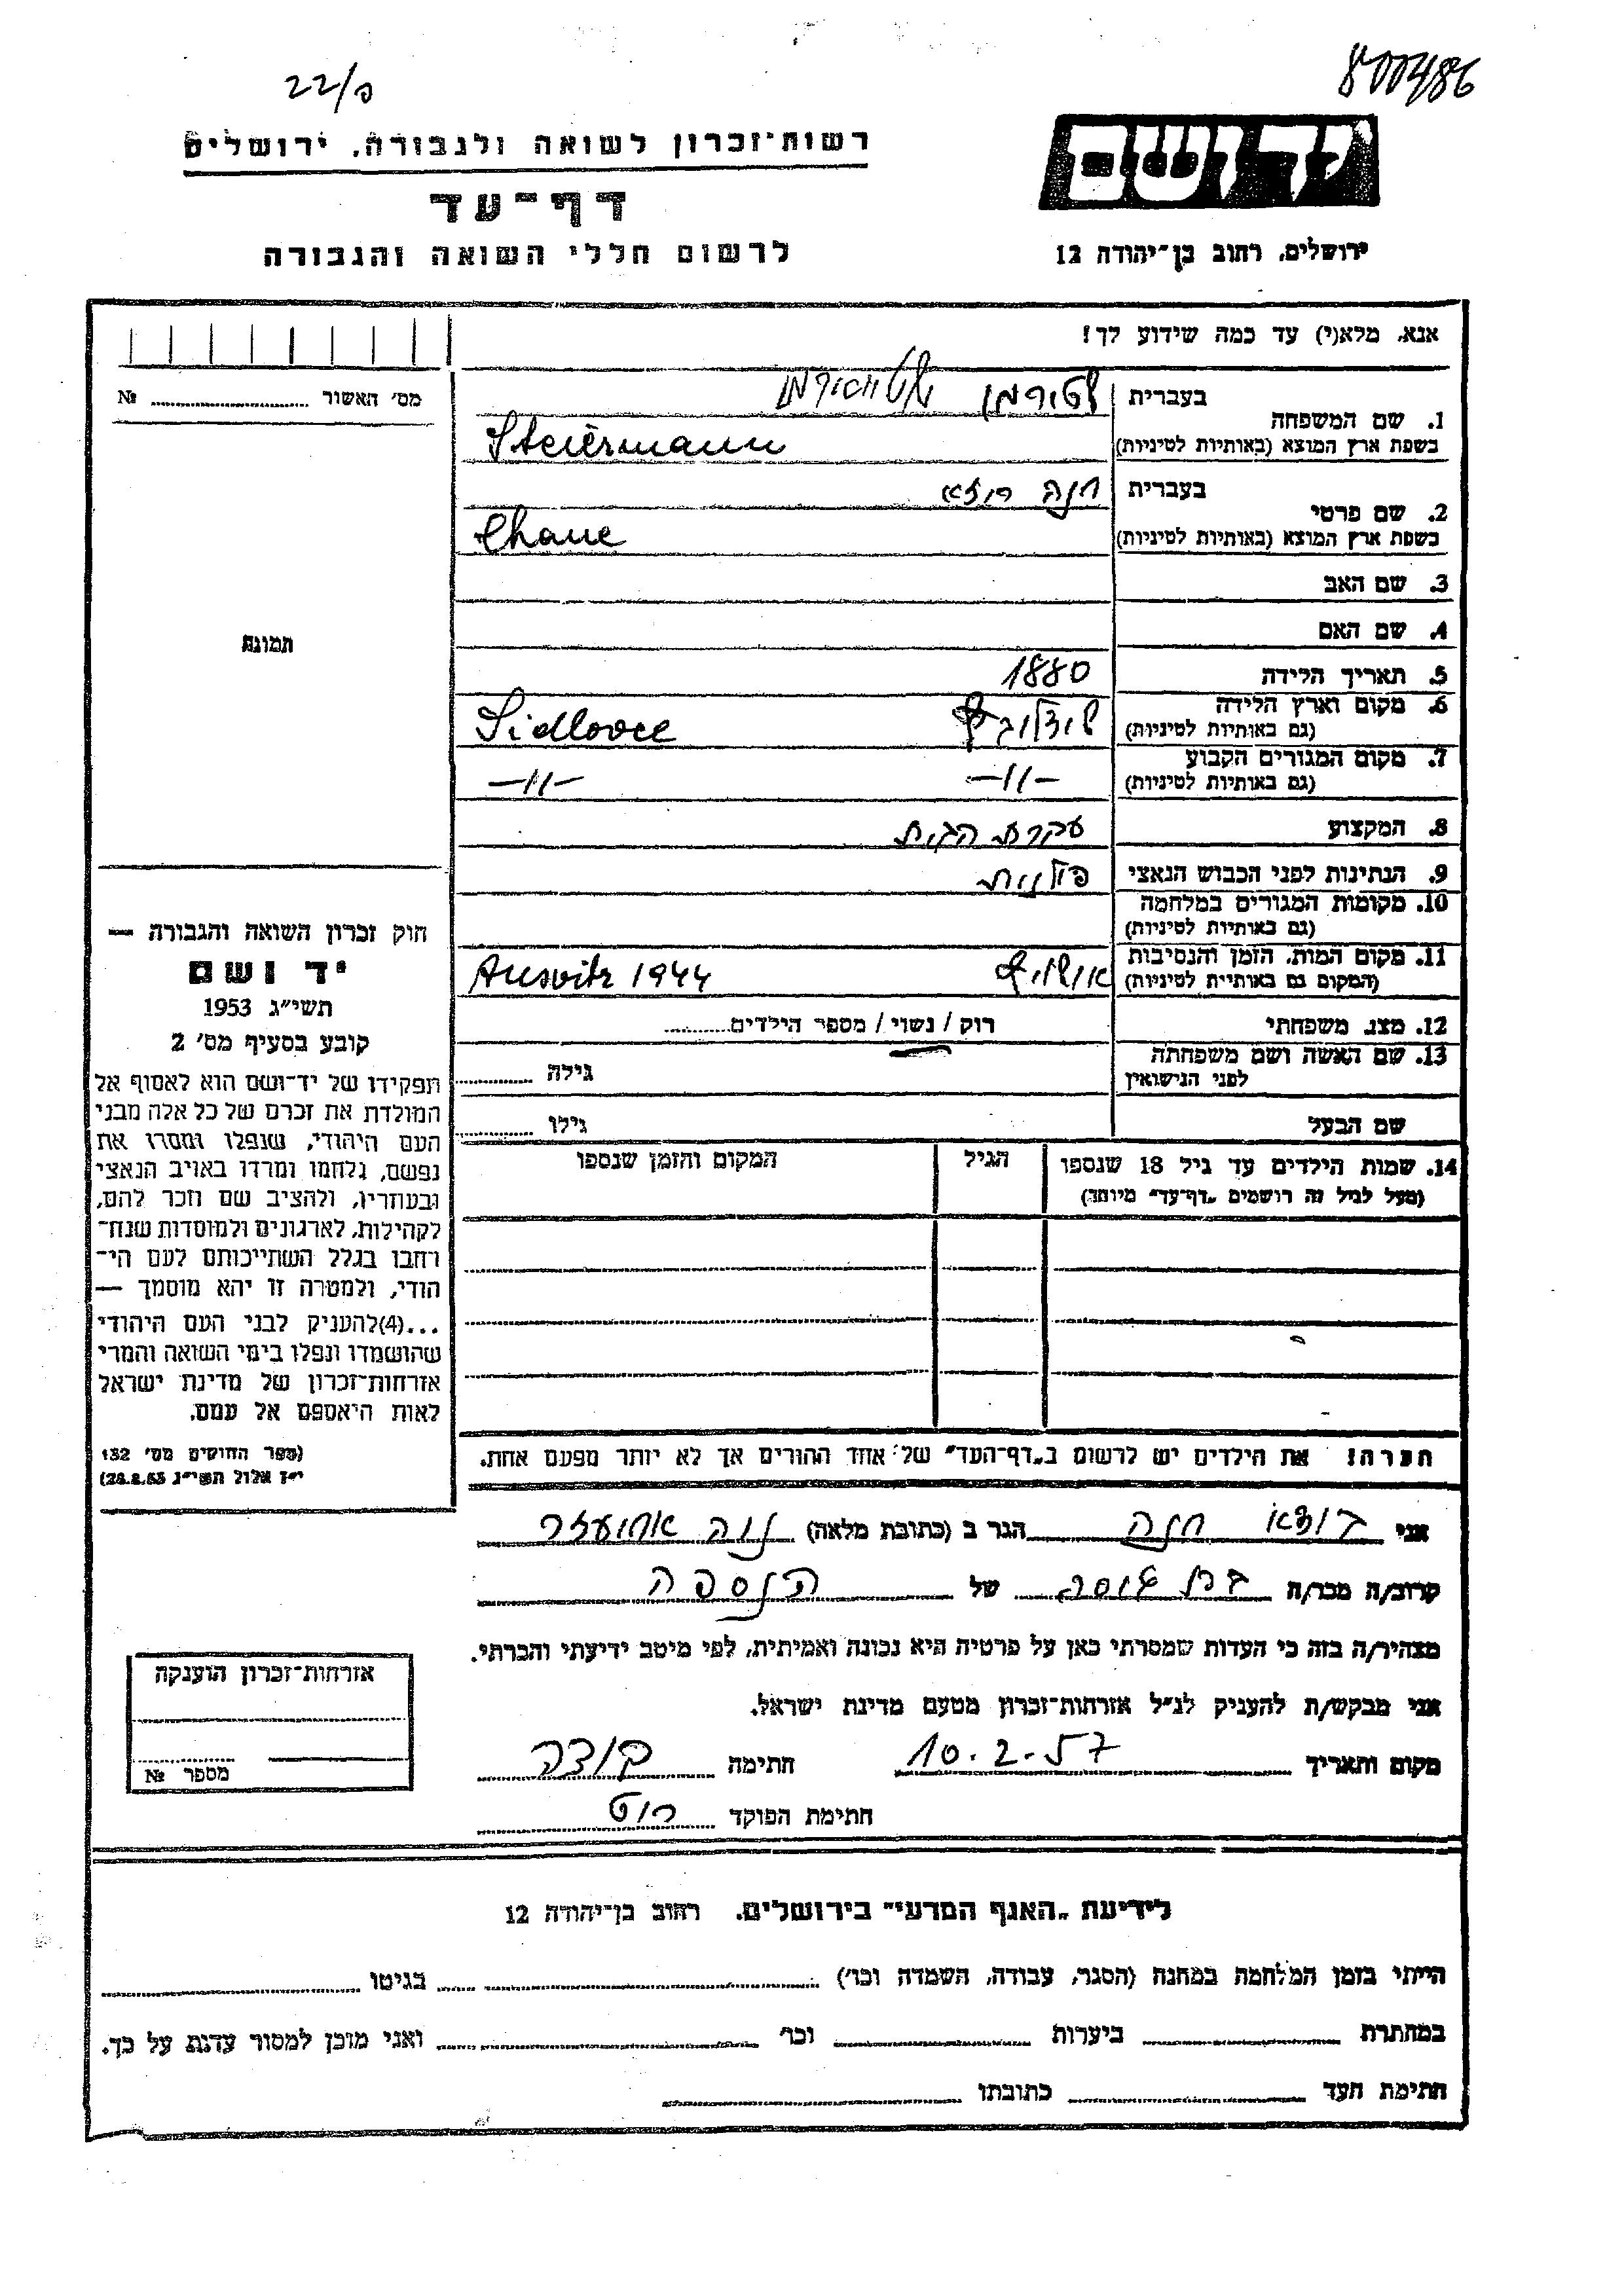 22/פ
800486
רשות־זכרון לשואה ולגבורה, ירושלים
יד ושם
דף־עד
לרשום חללי השואה והגבורה
ירושלים, רחוב בן־יהודה 12
אנא, מלא(י) עד כמה שידוע לך!
מס' האשור № ..........
1. שם המשפחה
בעברית שטירמן
בשפת ארץ המוצא (באותיות לטיניות) Steiermann
2. שם פרטי
בעברית חנה
בשפת ארץ המוצא (באותיות לטיניות) Chane
3. שם האב
4. שם האם
תמונה
5. תאריך הלידה 1880
6. מקום וארץ הלידה
(גם באותיות לטיניות) שידלובץ Sidlovce
7. מקום המגורים הקבוע
(גם באותיות לטיניות) —11— —11—
8. המקצוע עקרת הבית
9. הנתינות לפני הכבוש הנאצי פולנית
10. מקומות המגורים במלחמה
(גם באותיות לטיניות)
11. מקום המות, הזמן והנסיבות
(המקום גם באותיית לטיניות) אושויץ Ausvitz 1944
12. מצב משפחתי רוק / נשוי / מספר הילדים..........
13. שם האשה ושם משפחתה
לפני הנישואין גילה ..........
שם הבעל גילו ..........
14. שמות הילדים עד גיל 18 שנספו הגיל המקום והזמן שנספו
(מעל לגיל זה רושמים „דף־עד" מיוחד)
חוק זכרון השואה והגבורה —
יד ושם
תשי"ג 1953
קובע בסעיף מס' 2
תפקידו של יד־ושם הוא לאסוף אל
המולדת את זכרם של כל אלה מבני
העם היהודי, שנפלו ומסרו את
נפשם, נלחמו ומרדו באויב הנאצי
ובעוזריו, ולהציב שם וזכר להם,
לקהילות, לארגונים ולמוסדות שנח־
רחבו בגלל השתייכותם לעם הי־
הודי, ולמטרה זו יהא מוסמך —
...(4)להעניק לבני העם היהודי
שהושמדו ונפלו בימי השואה והמרי
אזרחות־זכרון של מדינת ישראל
לאות היאספם אל עמם.
(ספר החוקים מס' 132
י"ז אלול תשי"ג 28.8.53)
הערה! את הילדים יש לרשום ב„דף־העד" של אחד ההורים אך לא יותר מפעם אחת.
אני חנה הגר ב (כתובת מלאה) נוה
קרוב/ה מכר/ה של הנספה
מצהיר/ה בזה כי העדות שמסרתי כאן על פרטיה היא נכונה ואמיתית, לפי מיטב ידיעתי והכרתי.
אני מבקש/ת להעניק לנ"ל אזרחות־זכרון מטעם מדינת ישראל.
מקום ותאריך 10.2.57 חתימה
חתימת הפוקד רוט
אזרחות־זכרון הוענקה
מספר №
לידיעת „האגף המדעי" בירושלים, רחוב בן־יהודה 12
הייתי בזמן המלחמה במחנה (הסגר, עבודה, השמדה וכו') בגיטו
במחתרת ביערות וכו' ואני מוכן למסור עדות על כך.
חתימת העד כתובתו